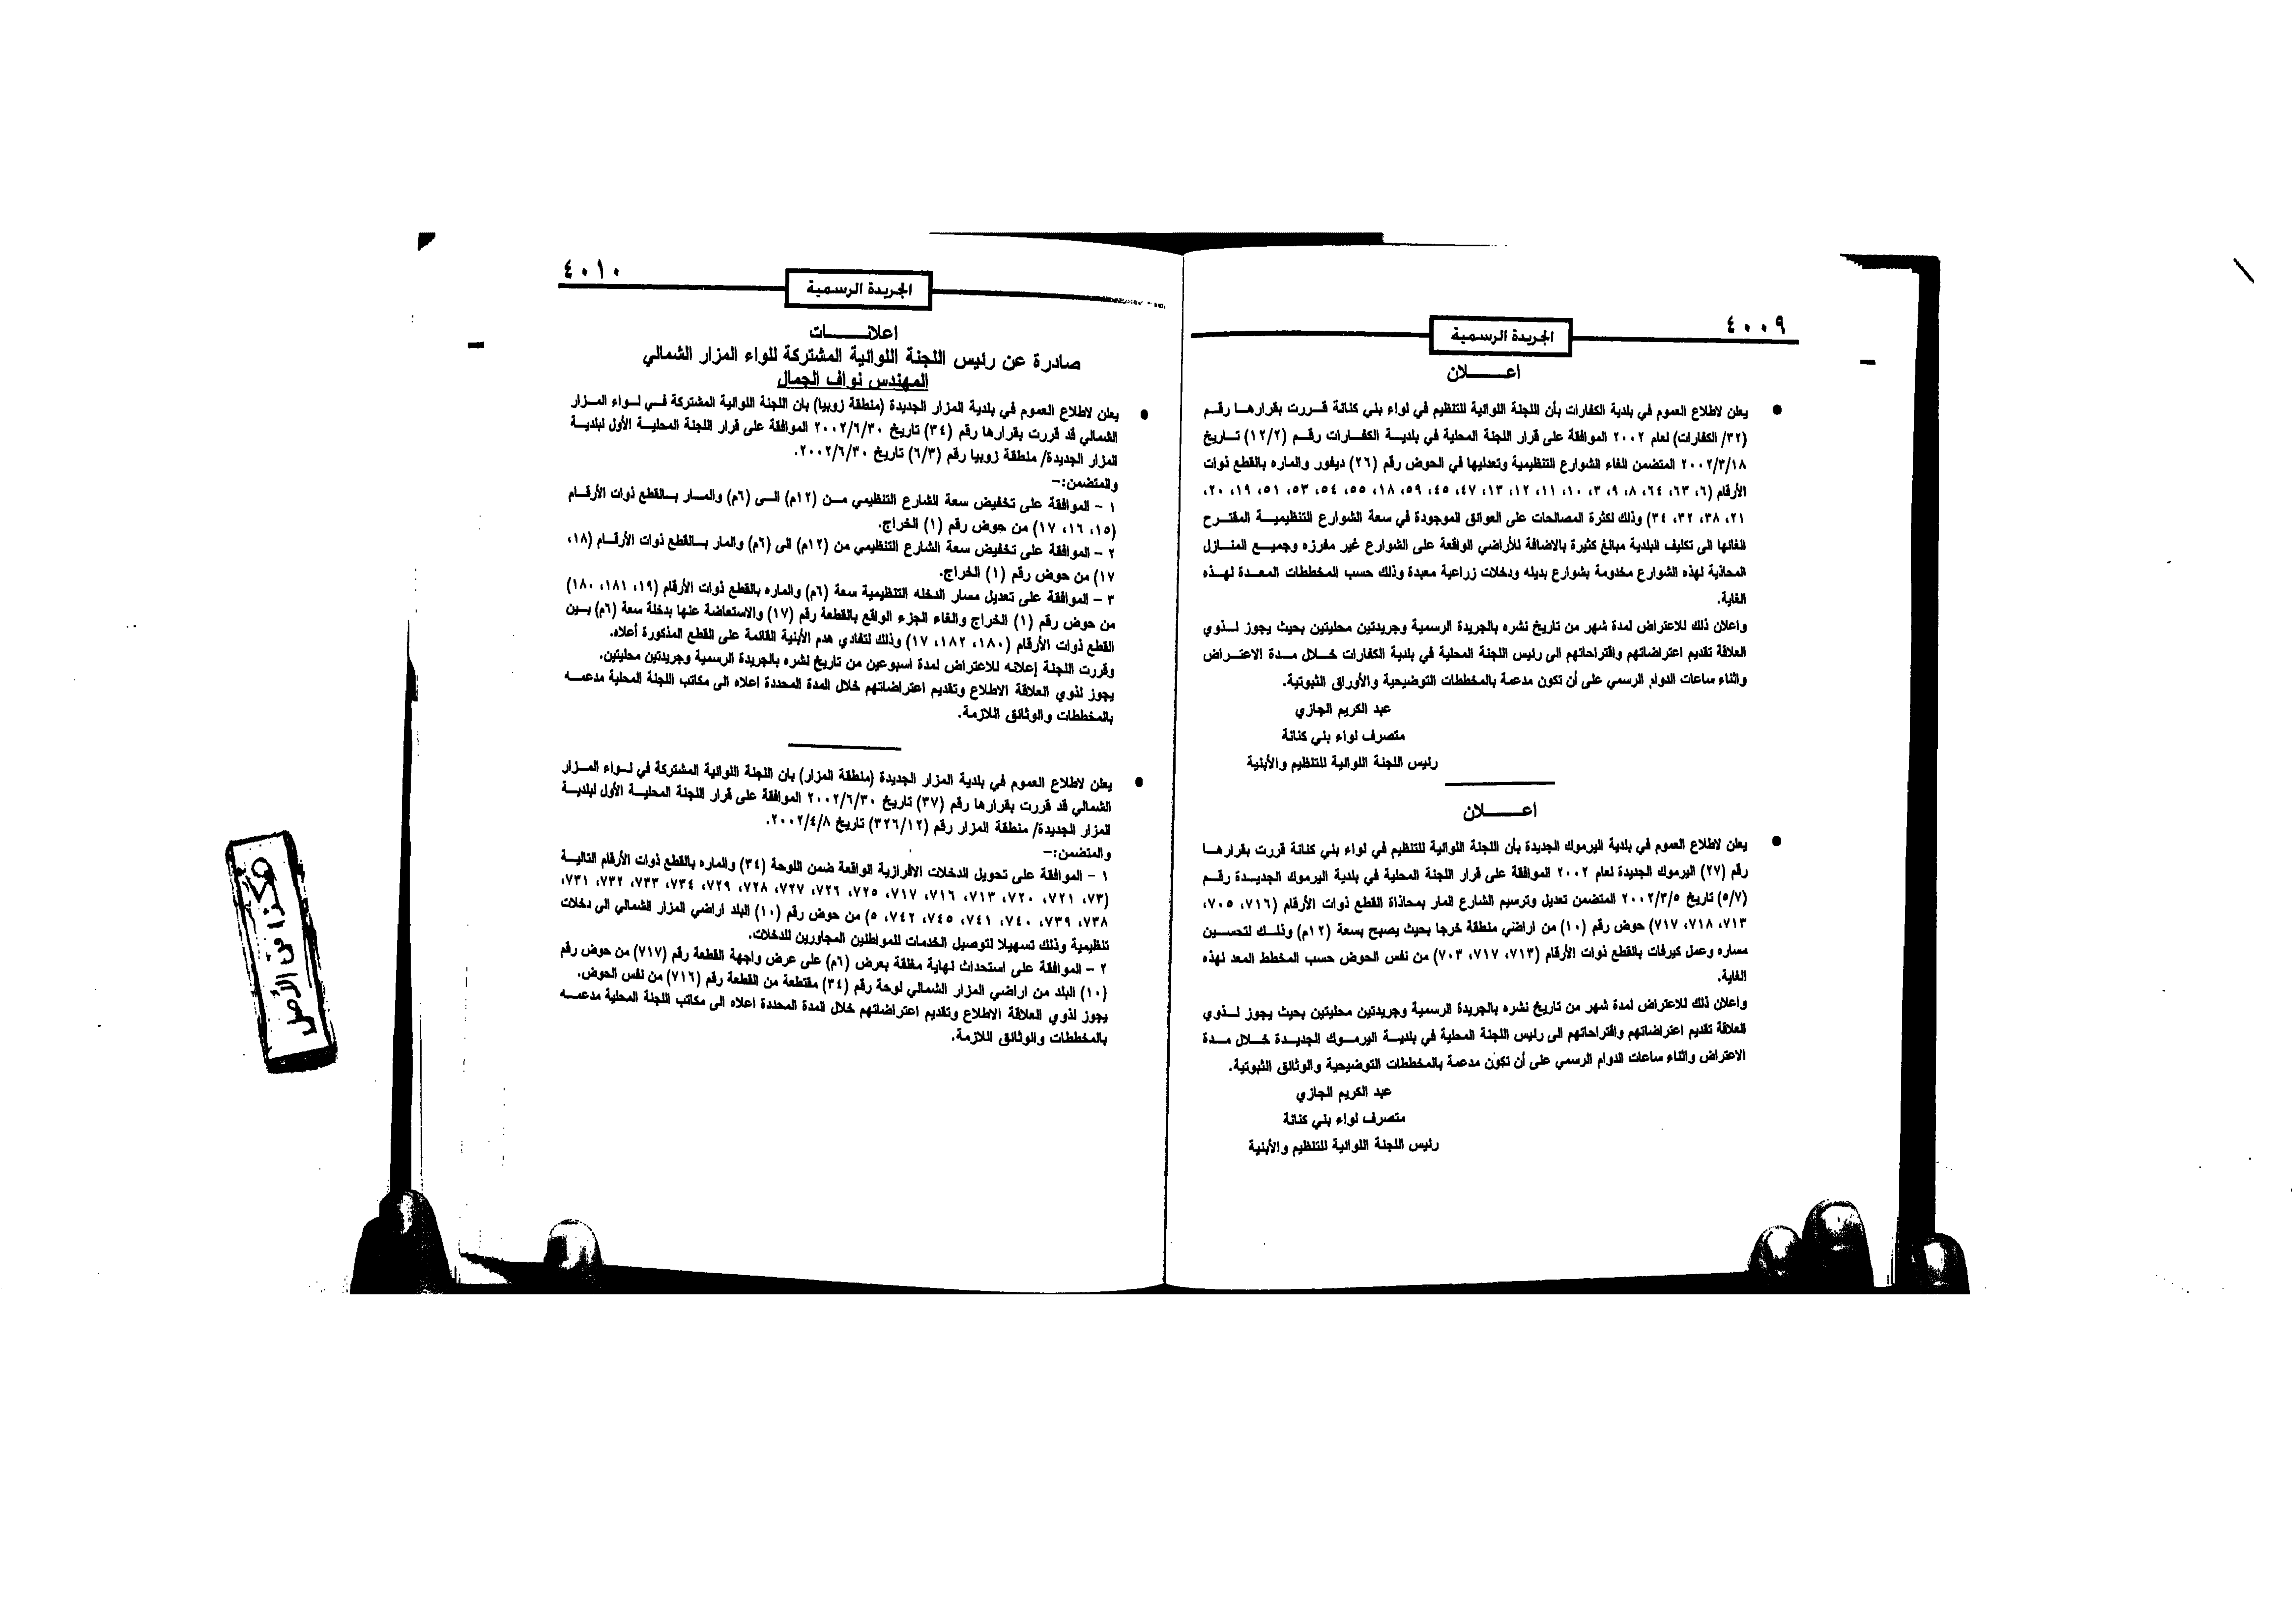 ٤٠٠٩
الجريدة الرسمية
اعـــــلان
● يعلن لاطلاع العموم في بلدية الكفارات بأن اللجنة اللوائية للتنظيم في لواء بني كنانة قـررت بقرارهـا رقـم
(٣٢/ الكفارات) لعام ٢٠٠٢ الموافقة على قرار اللجنة المحلية في بلديـة الكفـارات رقـم (١٢/٢) تـاريخ
٢٠٠٢/٣/١٨ المتضمن الغاء الشوارع التنظيمية وتعدليها في الحوض رقم (٢٦) ديفور والماره بالقطع ذوات
الأرقام (٦، ٦٣، ٦٤، ٨، ٩، ٣، ١٠، ١١، ١٢، ١٣، ٤٧، ٤٥، ٥٩، ١٨، ٥٥، ٥٤، ٥٣، ٥١، ١٩، ٢٠،
٢١، ٣٨، ٣٢، ٣٤) وذلك لكثرة المصالحات على العوائق الموجودة في سعة الشوارع التنظيميـة المقتـرح
الغائها الى تكليف البلدية مبالغ كثيرة بالاضافة للأراضي الواقعة على الشوارع غير مفرزه وجميـع المنـازل
المحاذية لهذه الشوارع مخدومة بشوارع بديله ودخلات زراعية معبدة وذلك حسب المخططات المعـدة لهـذه
الغاية.
واعلان ذلك للاعتراض لمدة شهر من تاريخ نشره بالجريدة الرسمية وجريدتين محليتين بحيث يجوز لـذوي
العلاقة تقديم اعتراضاتهم واقتراحاتهم الى رئيس اللجنة المحلية في بلدية الكفارات خـلال مـدة الاعتـراض
واثناء ساعات الدوام الرسمي على أن تكون مدعمة بالمخططات التوضيحية والأوراق الثبوتية.
عبد الكريم الجازي
متصرف لواء بني كنانة
رئيس اللجنة اللوائية للتنظيم والأبنية
اعـــــلان
● يعلن لاطلاع العموم في بلدية اليرموك الجديدة بأن اللجنة اللوائية للتنظيم في لواء بني كنانة قررت بقرارهـا
رقم (٢٧) اليرموك الجديدة لعام ٢٠٠٢ الموافقة على قرار اللجنة المحلية في بلدية اليرموك الجديـدة رقـم
(٥/٧) تاريخ ٢٠٠٢/٣/٥ المتضمن تعديل وترسيم الشارع المار بمحاذاة القطع ذوات الأرقام (٧١٦، ٧٠٥،
٧١٣، ٧١٨، ٧١٧) حوض رقم (١٠) من اراضي منطقة خرجا بحيث يصبح بسعة (١٢م) وذلـك لتحسـين
مساره وعمل كيرفات بالقطع ذوات الأرقام (٧١٣، ٧١٧، ٧٠٣) من نفس الحوض حسب المخطط المعد لهذه
الغاية.
واعلان ذلك للاعتراض لمدة شهر من تاريخ نشره بالجريدة الرسمية وجريدتين محليتين بحيث يجوز لـذوي
العلاقة تقديم اعتراضاتهم واقتراحاتهم الى رئيس اللجنة المحلية في بلديـة اليرموك الجديـدة خـلال مـدة
الاعتراض واثناء ساعات الدوام الرسمي على أن تكون مدعمة بالمخططات التوضيحية والوثائق الثبوتية.
عبد الكريم الجازي
متصرف لواء بني كنانة
رئيس اللجنة اللوائية للتنظيم والأبنية
٤٠١٠
الجريدة الرسمية
اعلانـــــات
صادرة عن رئيس اللجنة اللوائية المشتركة للواء المزار الشمالي
المهندس نواف الجمال
● يعلن لاطلاع العموم في بلدية المزار الجديدة (منطقة زوبيا) بان اللجنة اللوائية المشتركة فـي لـواء المـزار
الشمالي قد قررت بقرارها رقم (٣٤) تاريخ ٢٠٠٢/٦/٣٠ الموافقة على قرار اللجنة المحليـة الأول لبلديـة
المزار الجديدة/ منطقة زوبيا رقم (٦/٣) تاريخ ٢٠٠٢/٦/٣٠.
والمتضمن:–
١ – الموافقة على تخفيض سعة الشارع التنظيمي مـن (١٢م) الـى (٦م) والمـار بـالقطع ذوات الأرقـام
(١٥، ١٦، ١٧) من حوض رقم (١) الخراج.
٢ – الموافقة على تخفيض سعة الشارع التنظيمي من (١٢م) الى (٦م) والمار بـالقطع ذوات الأرقـام (١٨،
١٧) من حوض رقم (١) الخراج.
٣ – الموافقة على تعديل مسار الدخله التنظيمية سعة (٦م) والماره بالقطع ذوات الأرقام (١٩، ١٨١، ١٨٠)
من حوض رقم (١) الخراج والغاء الجزء الواقع بالقطعة رقم (١٧) والاستعاضة عنها بدخلة سعة (٦م) بـين
القطع ذوات الأرقام (١٨٠، ١٨٢، ١٧) وذلك لتفادي هدم الأبنية القائمة على القطع المذكورة أعلاه.
وقررت اللجنة إعلانه للاعتراض لمدة اسبوعين من تاريخ نشره بالجريدة الرسمية وجريدتين محليتين.
يجوز لذوي العلاقة الاطلاع وتقديم اعتراضاتهم خلال المدة المحددة اعلاه الى مكاتب اللجنة المحلية مدعمـه
بالمخططات والوثائق اللازمة.
● يعلن لاطلاع العموم في بلدية المزار الجديدة (منطقة المزار) بان اللجنة اللوائية المشتركة في لـواء المـزار
الشمالي قد قررت بقرارها رقم (٣٧) تاريخ ٢٠٠٢/٦/٣٠ الموافقة على قرار اللجنة المحليـة الأول لبلديـة
المزار الجديدة/ منطقة المزار رقم (٣٢٦/١٢) تاريخ ٢٠٠٢/٤/٨.
والمتضمن:–
١ – الموافقة على تحويل الدخلات الافرازية الواقعة ضمن اللوحة (٣٤) والماره بالقطع ذوات الأرقام التاليـة
(٧٣، ٧٢١، ٧٢٠، ٧١٣، ٧١٦، ٧١٧، ٧٢٥، ٧٢٦، ٧٢٧، ٧٢٨، ٧٢٩، ٧٣٤، ٧٣٣، ٧٣٢، ٧٣١،
٧٣٨، ٧٣٩، ٧٤٠، ٧٤١، ٧٤٥، ٧٤٢، ٥) من حوض رقم (١٠) البلد اراضي المزار الشمالي الى دخلات
تنظيمية وذلك تسهيلا لتوصيل الخدمات للمواطنين المجاورين للدخلات.
٢ – الموافقة على استحداث نهاية مغلقة بعرض (٦م) على عرض واجهة القطعة رقم (٧١٧) من حوض رقم
(١٠) البلد من اراضي المزار الشمالي لوحة رقم (٣٤) مقتطعة من القطعة رقم (٧١٦) من نفس الحوض.
يجوز لذوي العلاقة الاطلاع وتقديم اعتراضاتهم خلال المدة المحددة اعلاه الى مكاتب اللجنة المحلية مدعمـه
بالمخططات والوثائق اللازمة.
هكذا من الأصل